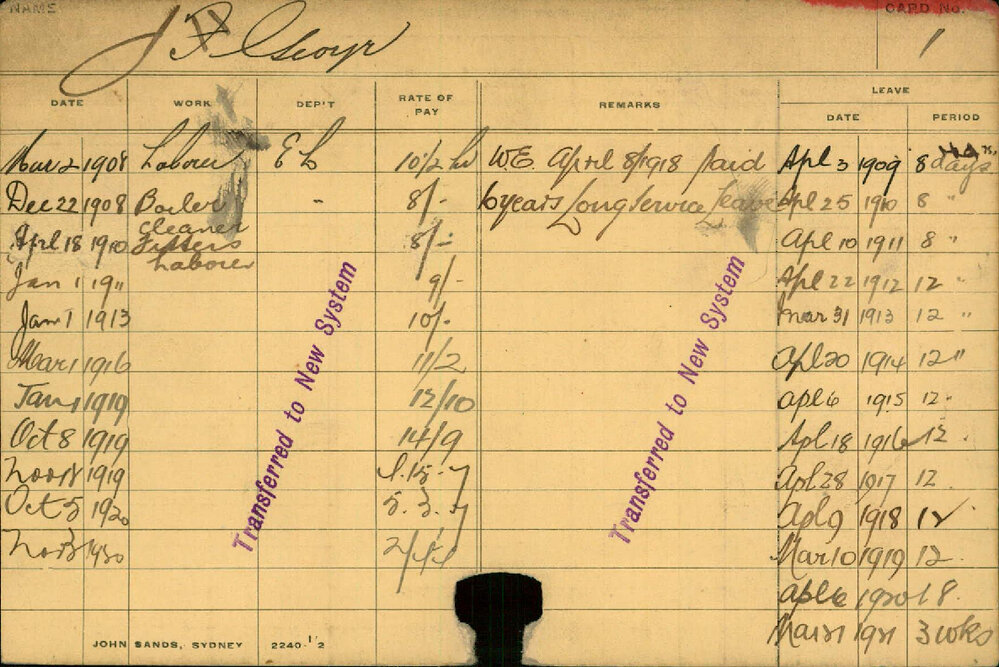 NAME
CARD No.
1
J F George
DATE WORK DEP'T RATE OF PAY REMARKS LEAVE
DATE PERIOD
Mar 2 1908 Laborer E L 10½ hr W.E. April 8/1918 paid Apl 3 1909 8 days
Dec 22 1908 Boiler cleaner " 8/- 6 years Long Service Leave Apl 25 1910 8 "
Aprl 18 1910 Fitters Laborer 8/- Apl 10 1911 8 "
Jan 1 1911 9/- Apl 22 1912 12 "
Jan 1 1913 10/- Mar 31 1913 12 "
Mar 1 1916 11/2 Apl 20 1914 12 "
Jan 1 1919 12/10 Apl 6 1915 12 "
Oct 8 1919 14/9 Apl 18 1916 12 "
Nov 1919 15-7 Apl 28 1917 12
Oct 5 1920 5.3.7 Apl 9 1918 12
Nov 1920 Mar 10 1919 12
Apl 6 1920 18
Mar 21 1921 3 wks
Transferred to New System
Transferred to New System
JOHN SANDS, SYDNEY 2240-1/2